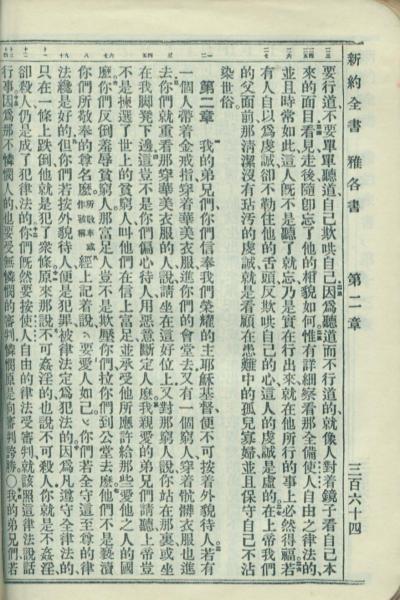 新約全書 雅各書 第二章 三百六十四
要行道、不要單單聽道、自己欺哄自己因爲聽道而不行道的、就像人對着鏡子看自己本
來的面目看見走後隨卽忘了他的相貌如何惟有詳細察看那全備使人自由之律法的、
並且時常如此、這人旣不是聽了就忘乃是實在行出來、就在他所行的事上必然得福若
有人自以爲虔誠卻不勒住他的舌頭反欺哄自己的心這人的虔誠是虛的在上帝我們
的父面前那清潔沒有玷污的虔誠就是看顧在患難中的孤兒寡婦並且保守自己不沾
染世俗。
第二章 我的弟兄們、你們信奉我們榮耀的主耶穌基督、便不可按着外貌待人若有
一個人帶着金戒指穿着華美衣服進你們的會堂去又有一個窮人穿着骯髒衣服也進
去你們就重看那穿華美衣服的人說請坐在這好位上又對那窮人說你站在那裏或坐
在我脚凳下邊這豈不是你們偏心待人用惡意斷定人麽我親愛的弟兄們請聽上帝豈
不是揀選了世上的貧窮人叫他們在信上富足並承受他所應許給那些愛他之人的國
麽你們反倒羞辱貧窮人那富足人豈不是欺壓你們拉你們到公堂去麽他們不是褻瀆
你們所敬奉的尊名麽所敬奉或作被稱 經上記着說、要愛人如己、你們若全守這至尊的律
法纔是好的但你們若按外貌待人便是犯罪被律法定爲犯法的因爲凡遵守全律法的、
只在一條上跌倒他就是犯了衆條原來那說不可姦淫的也說不可殺人你就是不姦淫
卻殺人仍是成了犯律法的你們旣然要按使人自由的律法受審判就該照這律法說話
行事因爲那不憐憫人的也要受無憐憫的審判憐憫原是向審判誇勝○我的弟兄們若